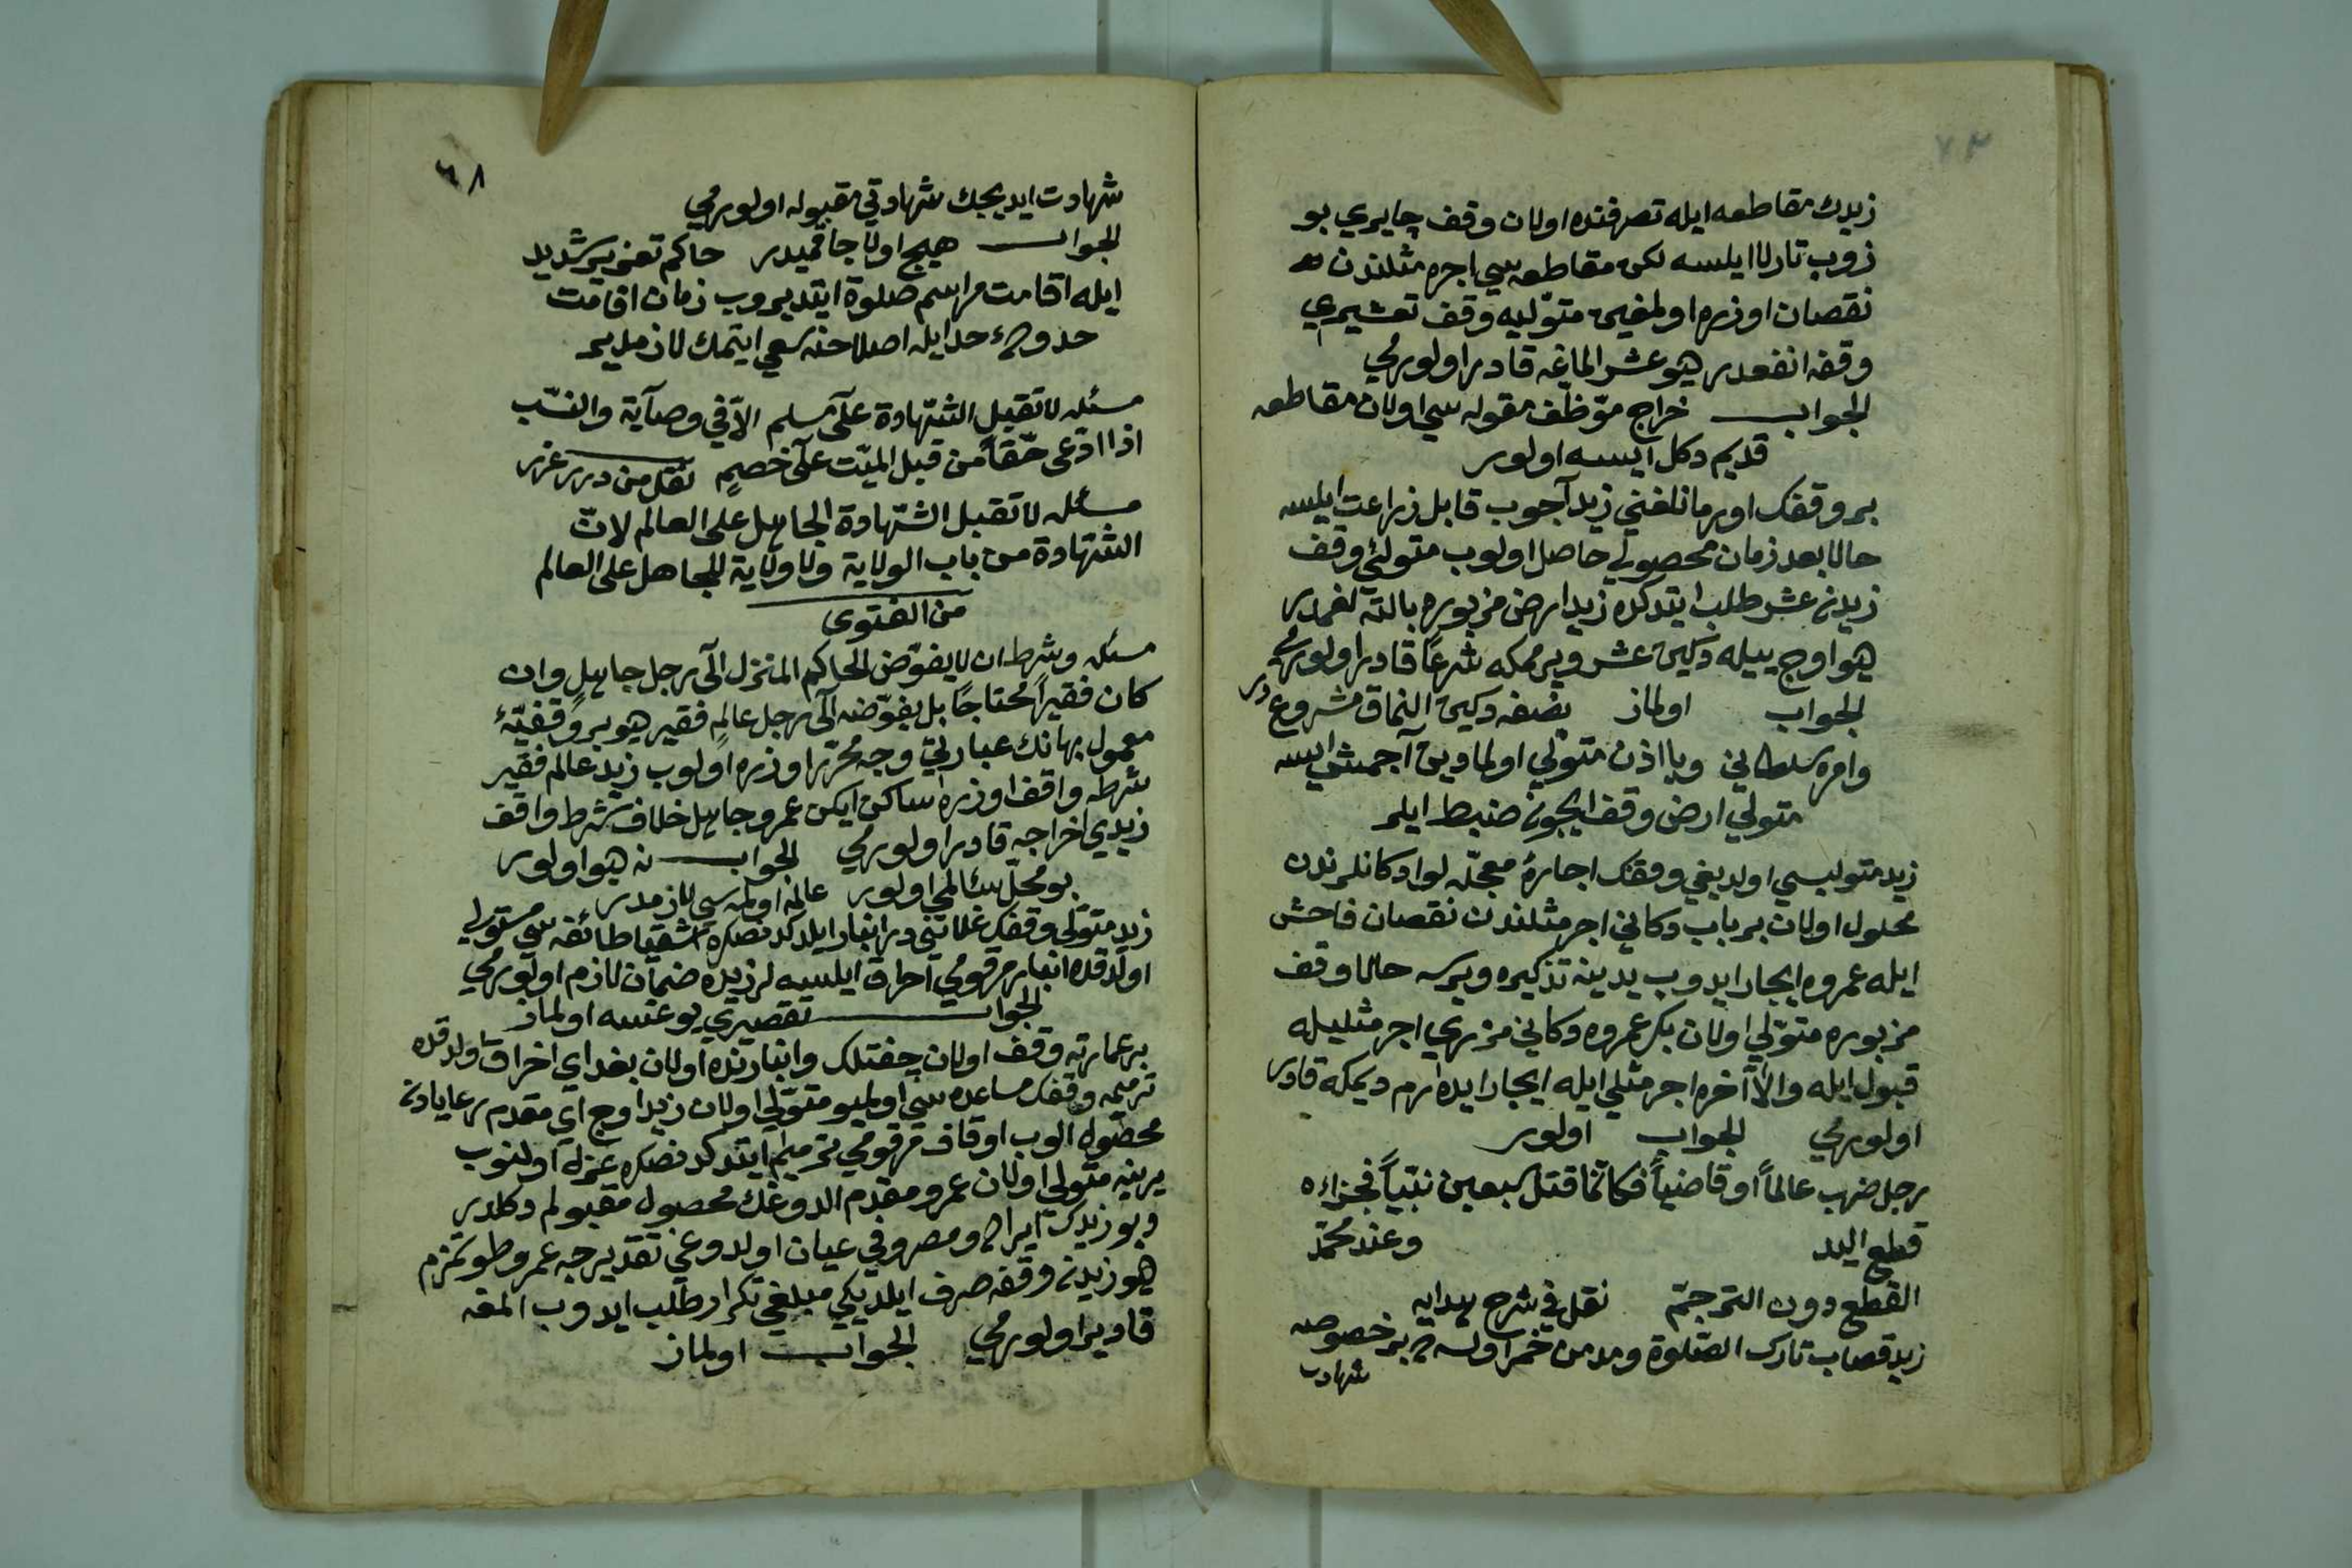 ٧٢
زيدك مقاطعه ايله تصرفنده اولان وقف چايري بو
زوب تارلا ايلسه لكن مقاطعه سي اجره مثلندن
نقصان اوزره اولمغين متوليه وقف تعشيري
وقفه انفعدر هيو عشر الماغه قادر اولورمي
الجواب خراج موظف مقوله سي اولان مقاطعه
قديم دكل ايسه اولور
بر وقفك اورمانلغني زيد آجوب قابل زراعت ايلسه
حالا بعد زمان محصولي حاصل اولوب متولئ وقف
زيدن عشر طلب ايتدكده زيد ارض مزبوره بالته لغمدر
هيو اوج ييله دكين عشر ويرممكه شرعاً قادر اولورمي
الجواب اولماز نصفه دكين النماق مشروع در
وامره سلطاني ويا اذن متولي اولمادين آجمش ايسه
متولي ارض وقف ايجون ضبط ايلر
زيد متوليسي اولديغي وقفك اجارهٔ معجله لو دكانلرندن
محلول اولان بر باب دكاني اجر مثلندن نقصان فاحش
ايله عمروه ايجار ايدوب يدينه تذكيره ويرسه حالا وقف
مزبوره متولي اولان بكر عمروه دكاني مزبوري اجر مثليله
قبول ايله والا آخره اجر مثلي ايله ايجار ايده رم ديمكه قادر
اولورمي الجواب اولور
رجل ضرب عالماً او قاضياً فكانما قتل سبعين نبياً فجزاءه
قطع اليد وعند محمد
القطع دون الترجم نقل في شرح هدايه
زيد قصاب تارك الصلوة ومدمن خمر اولسه بر خصوصه
شهادت
٦٨
شهادت ايديجك شهادتي مقبوله اولورمي
الجواب هيچ اولاجاقميدر حاكم تعزير شديد
ايله اقامت مراسم صلوة ايتديروب زمان اقامت
حدوده حد ايله اصلاحنه سعي ايتمك لازمدير
مسئله لا تقبل الشهادة على مسلم الا في وصاية والنسب
اذا ادعى حقاً من قبل الميت على خصمٍ نقل من درر غرر
مسئله لا تقبل الشهادة الجاهل على العالم لان
الشهادة من باب الولاية ولا ولاية للجاهل على العالم
من الفتوى
مسئله وشرط ان لا يفوض الحاكم المنزل الى رجل جاهل وان
كان فقيراً محتاجاً بل يفوضه الى رجل عالمٍ فقير هيو بر وقفيهٔ
معمول بهانك عبارتي وجه محرر اوزره اولوب زيد عالم فقير
شرطه واقف اوزره ساكن ايكن عمرو جاهل خلاف شرط واقف
زيدي اخراجه قادر اولورمي الجواب نه هيو اولور
بو محل سئالمي اولور عالمه اولمسي لازمدر
زيد متولي وقفك غلاتني در انبار ايلدكدنصكره اشقيا طائفه سي مستولي
اولدقده انبار مرقومي احراق ايلسه لر زيده ضمان لازم اولورمي
الجواب تقصيري يوغسه اولماز
بر عمارته وقف اولان چفتلك وانبارنده اولان بغداي احراق اولدقده
ترميمه وقفك مساعده سي اولميو متولي اولان زيد اوج اي مقدم رعايادن
محصول الوب اوقاف مرقومي ترميم ايتدكدنصكره عزل اولنوب
يرينه متولي اولان عمرو مقدم الدوغك محصول مقبولم دكلدر
ديو زيدك ايراد ومصروفي عيان اولدوغي تقديرجه عمرو طويمزم
هيو زيدن وقفه صرف ايلديكي مبلغي تكرار طلب ايدوب المغه
قادير اولورمي الجواب اولماز